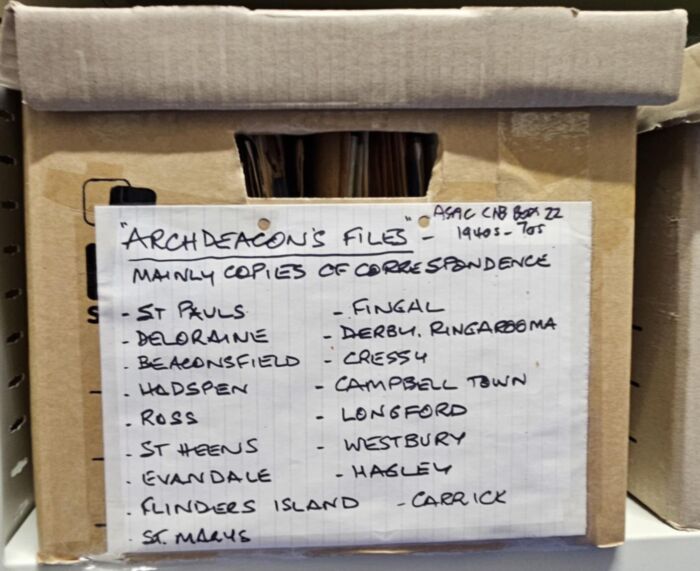 "ARCHDEACON'S FILES" - ASAC CNB BOX 22
1940s - 70s
MAINLY COPIES OF CORRESPONDENCE
- ST PAULS - FINGAL
- DELORAINE - DERBY. RINGAROOMA
- BEACONSFIELD - CRESSY
- HADSPEN - CAMPBELL TOWN
- ROSS - LONGFORD
- ST HEENS - WESTBURY
- EVANDALE - HAGLEY
- FLINDERS ISLAND - CARRICK
- ST. MARYS